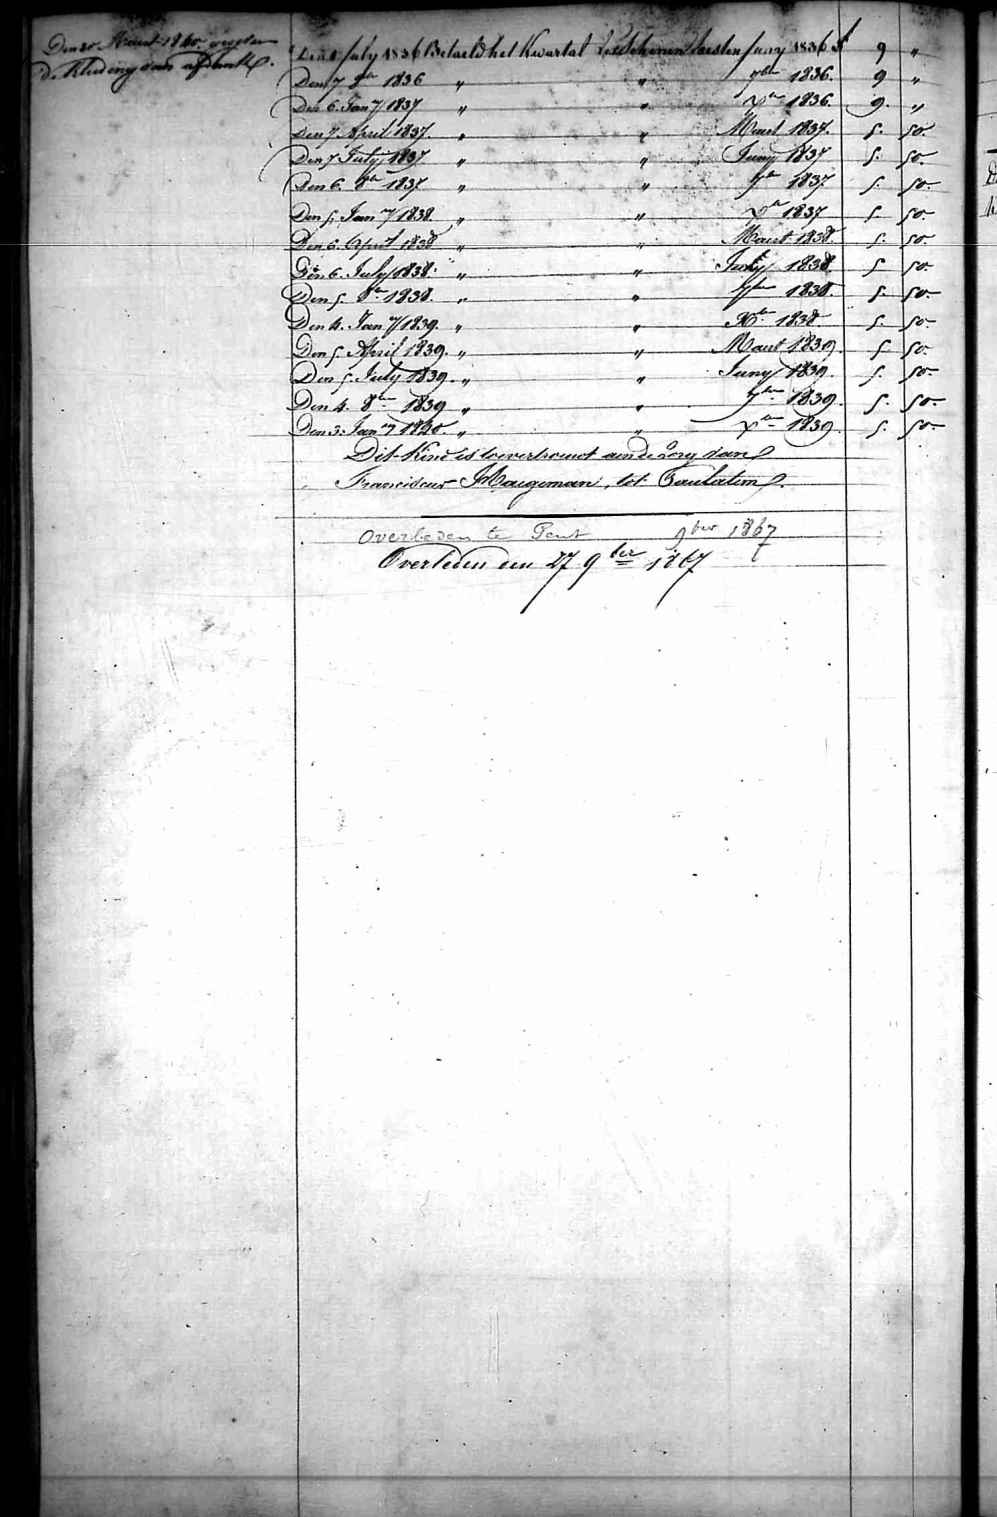 Den 20 Maart 1840
de Kleding van
Den July 1836 Betaeld het Kwartal Verschenen laesten Juny 1836 f 9 "
Den 7 8er 1836 " " 7ber 1836. 9 "
Den 6. Jany 1837 " " Xer 1836. 9. "
Den 7. April 1837. " " Maert 1837. 5. 50
Den 7 July 1837 " " Juny 1837 5. 50.
Den 6. 8er 1837 " " 7er 1837 5 50.
Den 5. Jany 1838. " " Xer 1837 5 50
Den 6. April 1838 " " Maert 1838. 5. 50.
Den 6. July 1838. " " July 1838. 5 50.
Den 5. 8er 1838. " " 7ber 1838. 5. 50.
Den 4. Jany 1839. " " Xber 1838 5. 50.
Den 5. April 1839. " " Maert 1839. 5 50.
Den 5. July 1839. " " Juny 1839. 5. 50.
Den 4. 8ber 1839 " " 7ber 1839. 5. 50.
Den 3. Jany 1840. " " Xer 1839. 5. 50.
Dit Kind is toevertrouwt aen de zorg van
Franciscus Maegeman, tot
Overleden te Gent 9ber 1867
Overleden den 27 9ber 1867